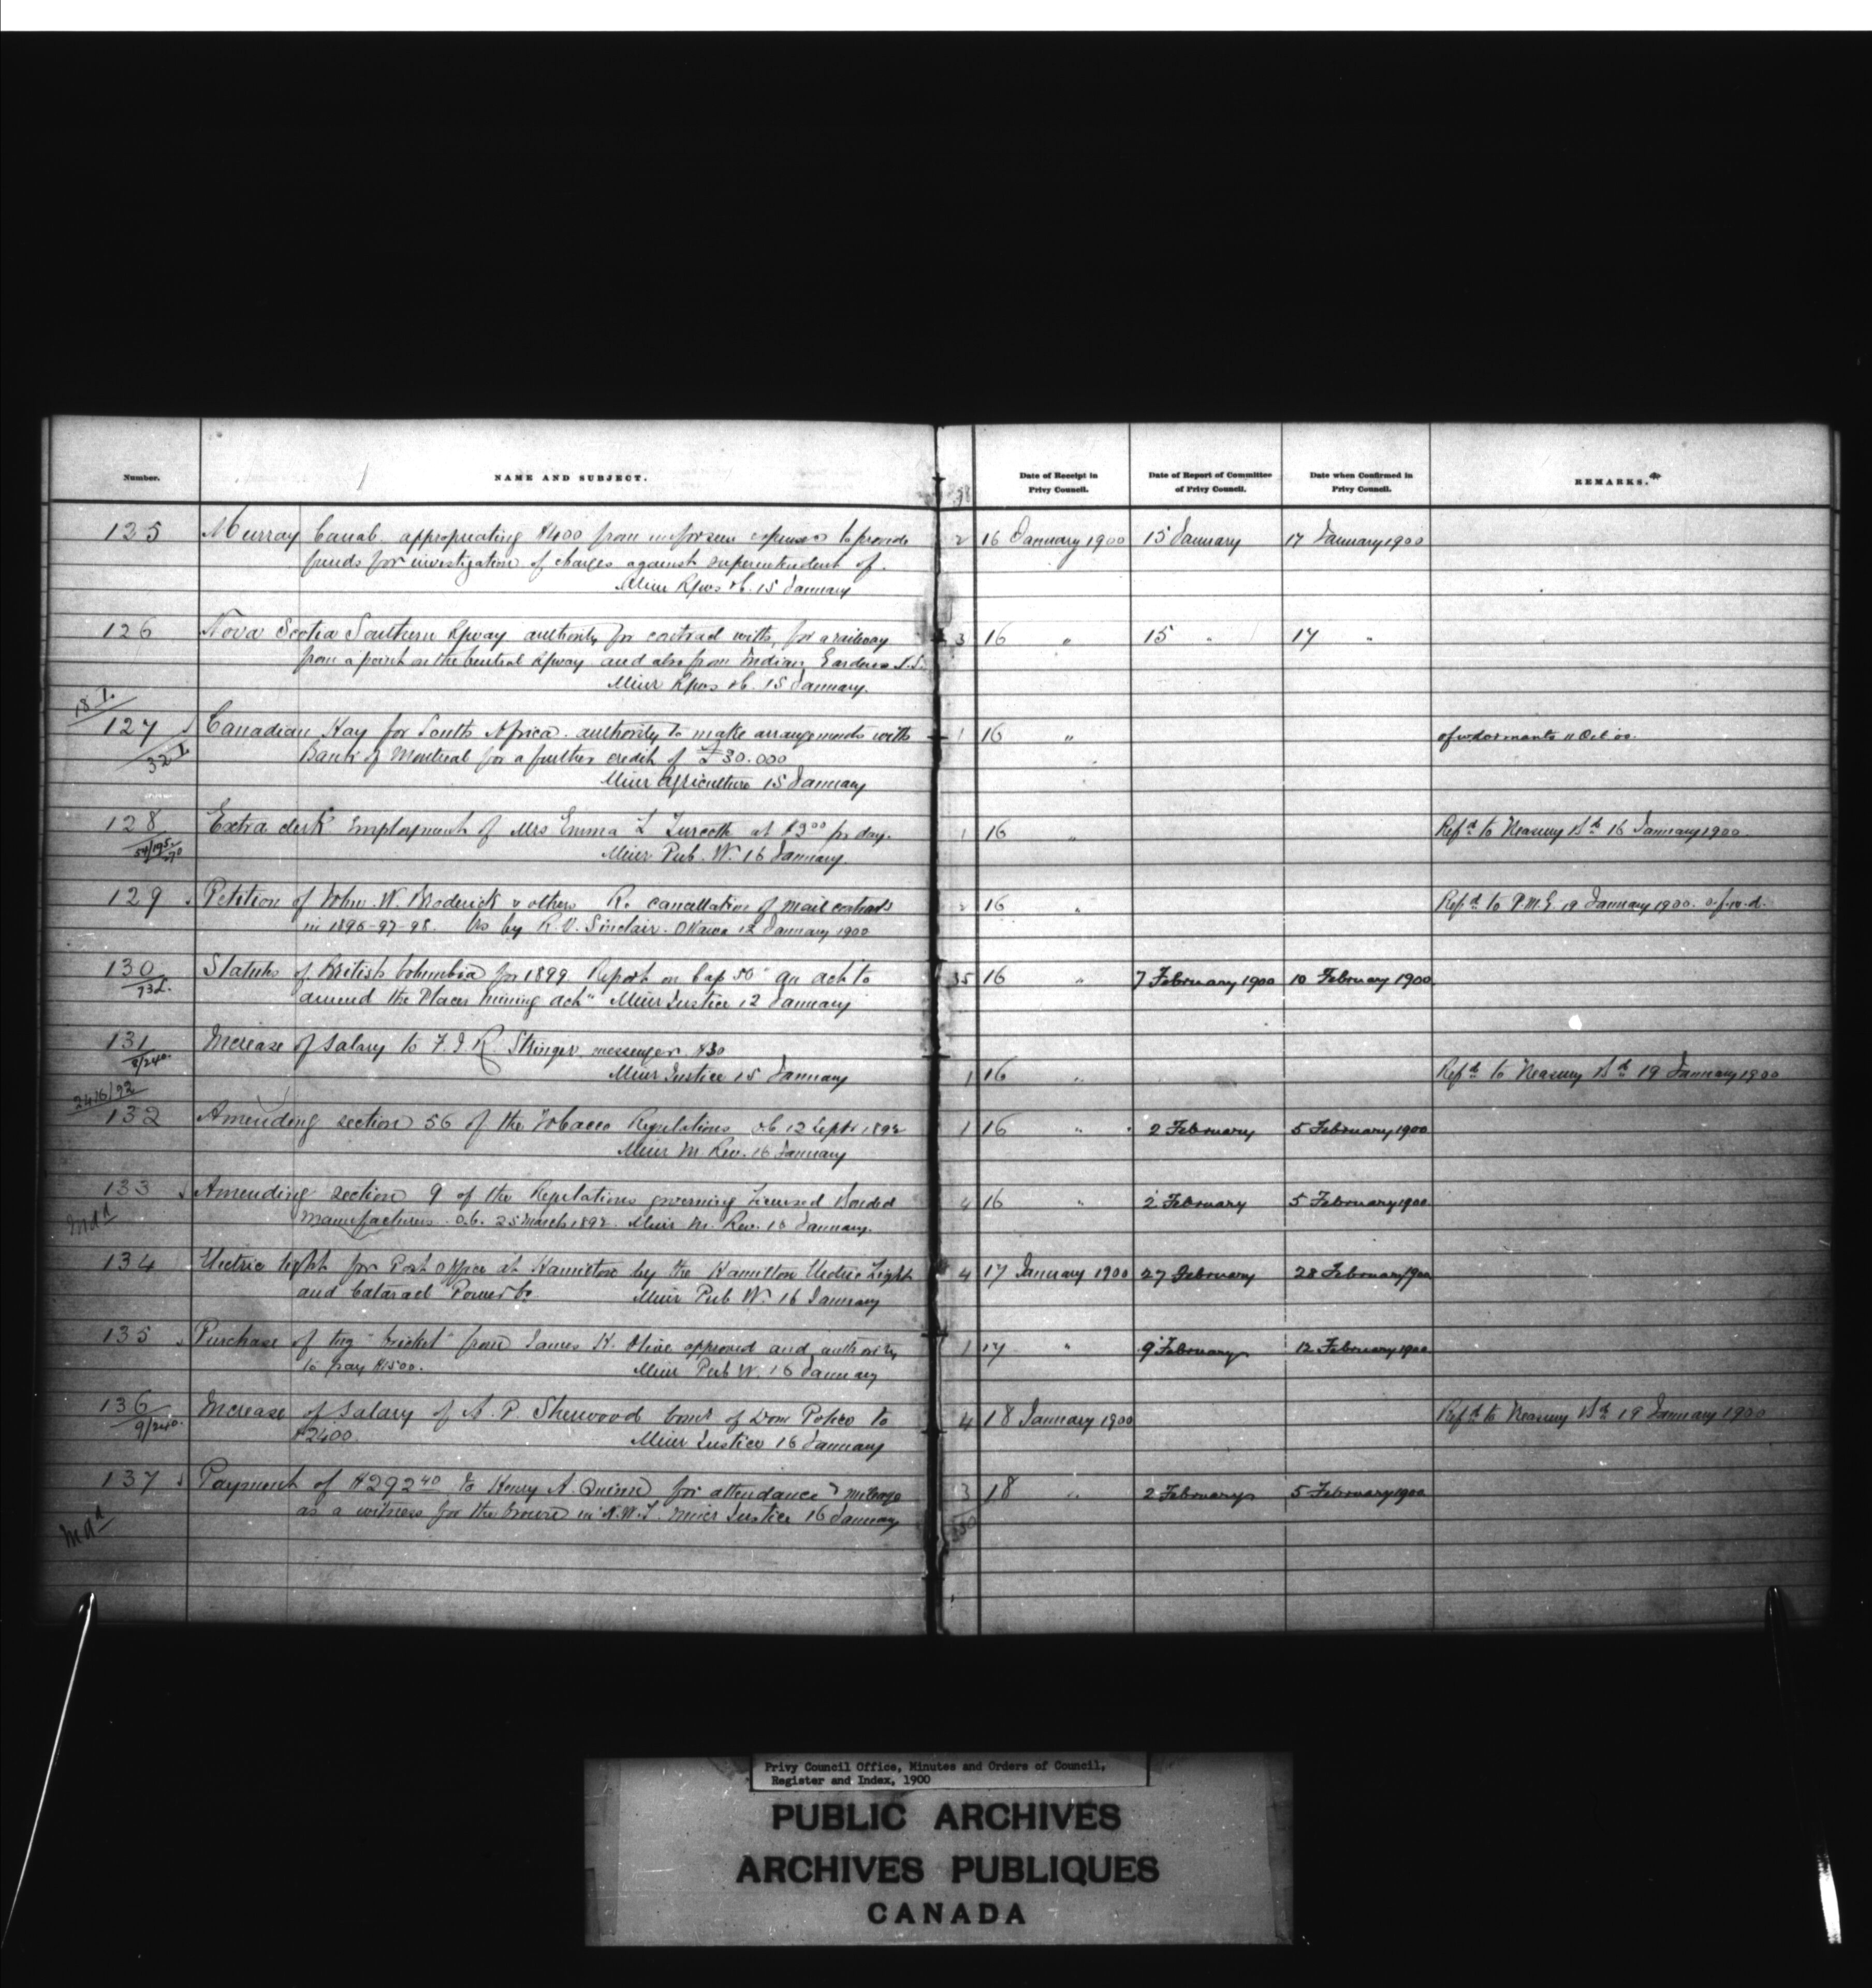 Number.
NAME AND SUBJECT.
Date of Receipt in Privy Council.
Date of Report of Committee of Privy Council.
Date when Confirmed in Privy Council.
REMARKS.
125 Murray Canal. appropriating $400 from unforseen expenses to provide 2 16 January 1900 15 January 17 January 1900
funds for investigation of charges against superintendent of.
Minr Rlws &C. 15 January
126 Nova Scotia Southern Rlway authority for contract with, for a railway 3 16 " 15 " 17 "
from a point on the Central Rlway and also from Indian Gardens N.S.
Minr Rlws &C. 15 January.
18 I.
127 Canadian Hay for South Africa. authority to make arrangements with 1 16 "
32 I Bank of Montreal for a further credit of £30.000
Minr Agriculture 15 January
128 Extra clerk Employment of Mrs Emma L Turcotte at $3.00 pr day. 1 16 " Refd to Treasury Bd 16 January 1900
Minr Pub. W. 16 January
129 Petition of John W. Broderick & others Re cancellation of mail contracts 2 16 " Refd to P.M.G. 19 January 1900. o.f.w.d.
in 1896-97-98. by R. V. Sinclair. Ottawa 12 January 1900
130 Statutes of British Columbia for 1899. Report on Cap 50 "an act to 35 16 " 7 February 1900 10 February 1900
amend the Placer mining act" Minr Justice 12 January
131 Increase of salary to F. J. R. Stringer, messenger. $30
8/240. Minr Justice 15 January 1 16 " Refd to Treasury Bd 19 January 1900
2426/92
132 Amending section 56 of the Tobacco Regulations O.C. 12 Sept 1892 1 16 " 2 February 5 February 1900
Minr In Rev. 16 January
133 Amending section 9 of the Regulations governing Licensed Bonded 4 16 " 2 February 5 February 1900
Manufacturers. O.C. 25 March 1892. Minr In. Rev. 16 January.
134 Electric light for Post Office at Hamilton by the Hamilton Electric Light 4 17 January 1900 27 February 28 February 1900
and Cataract Power Co. Minr Pub W. 16 January
135 Purchase of tug "Cricket" from James H. Olive approved and authority 1 17 " 9 February 12 February 1900
to pay $1500. Minr Pub W. 16 January
136 Increase of salary of A. P. Sherwood Comr of Dom Police to 4 18 January 1900 Refd to Treasury Bd 19 January 1900
9/240. $2400. Minr Justice 16 January
137 Payment of $292.40 to Henry A. Quinn for attendance & mileage 3 18 " 2 February 5 February 1900
as a witness for the Crown in N.W.T. Minr Justice 16 January
Privy Council Office, Minutes and Orders of Council,
Register and Index, 1900
PUBLIC ARCHIVES
ARCHIVES PUBLIQUES
CANADA